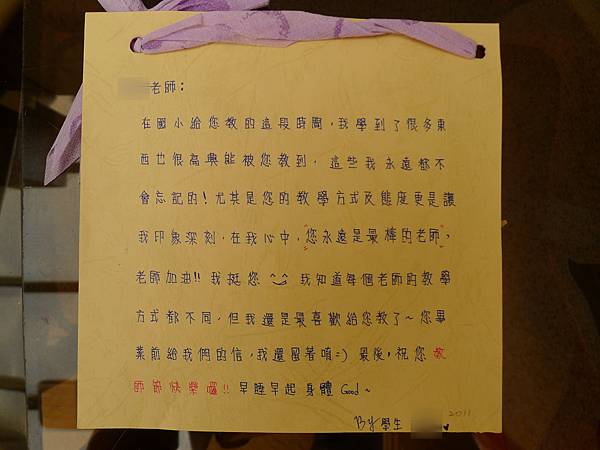 老師:
在國小給您教的這段時間,我學到了很多東
西也很高興能被您教到,這些我永遠都不
會忘記的!尤其是您的教學方式及態度更是讓
我印象深刻,在我心中,"您永遠是最棒的老師"。
老師加油!!我挺您 ^_^ 我知道每個老師的教學
方式都不同,但我還是最喜歡給您教了~您畢
業前給我們的信,我還留著唷=) 最後,祝您教
師節快樂囉!!早睡早起身體Good~
By學生
2011